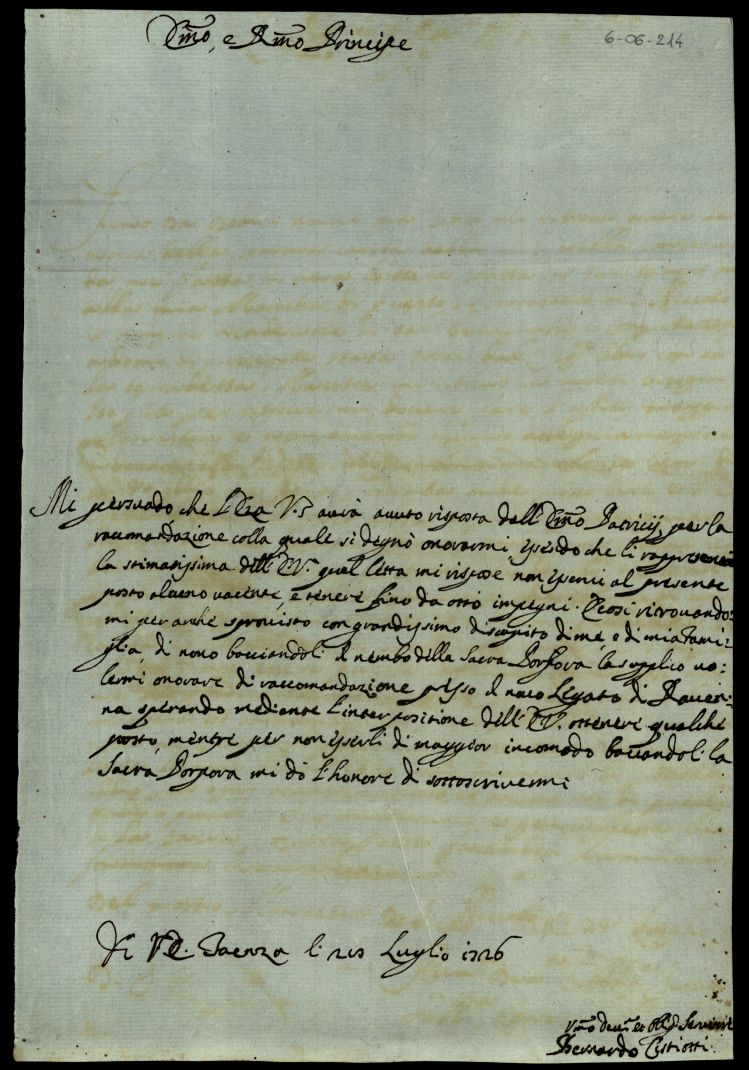 Em̃o, e Rm̃o Principe
6-06-214
Mi persuado che l'Eza V.ſ averà avuto risposta dall'Em̃o Patricij, per la
raccomandazione colla quale si degnò onorarmi, essendo che li
la stimatissima dell'EV. quel letta mi rispose non esservi al presente
posto alcuno vacente, e tenere fino da otto impegni. E cosi ritrovando:
mi per anche sprovisto con grandissimo discapito di me, e di mia Fami:
glia, di novo bacciandoli il nembo della Sacra Porpora, la supplico vo:
lermi onorare di raccomandazione presso il novo Legato di Raven:
na sperando mediante l'interpositione dell'EV. ottenere qualche
posto, mentre per non esserli di maggior incomodo bacciandoli la
Sacra Porpora mi dò l'honore di sottoscrivermi
Di VE. Faenza li Luglio 1726
Vm̃o Dev.º et Obl.º Servire
Bernardo